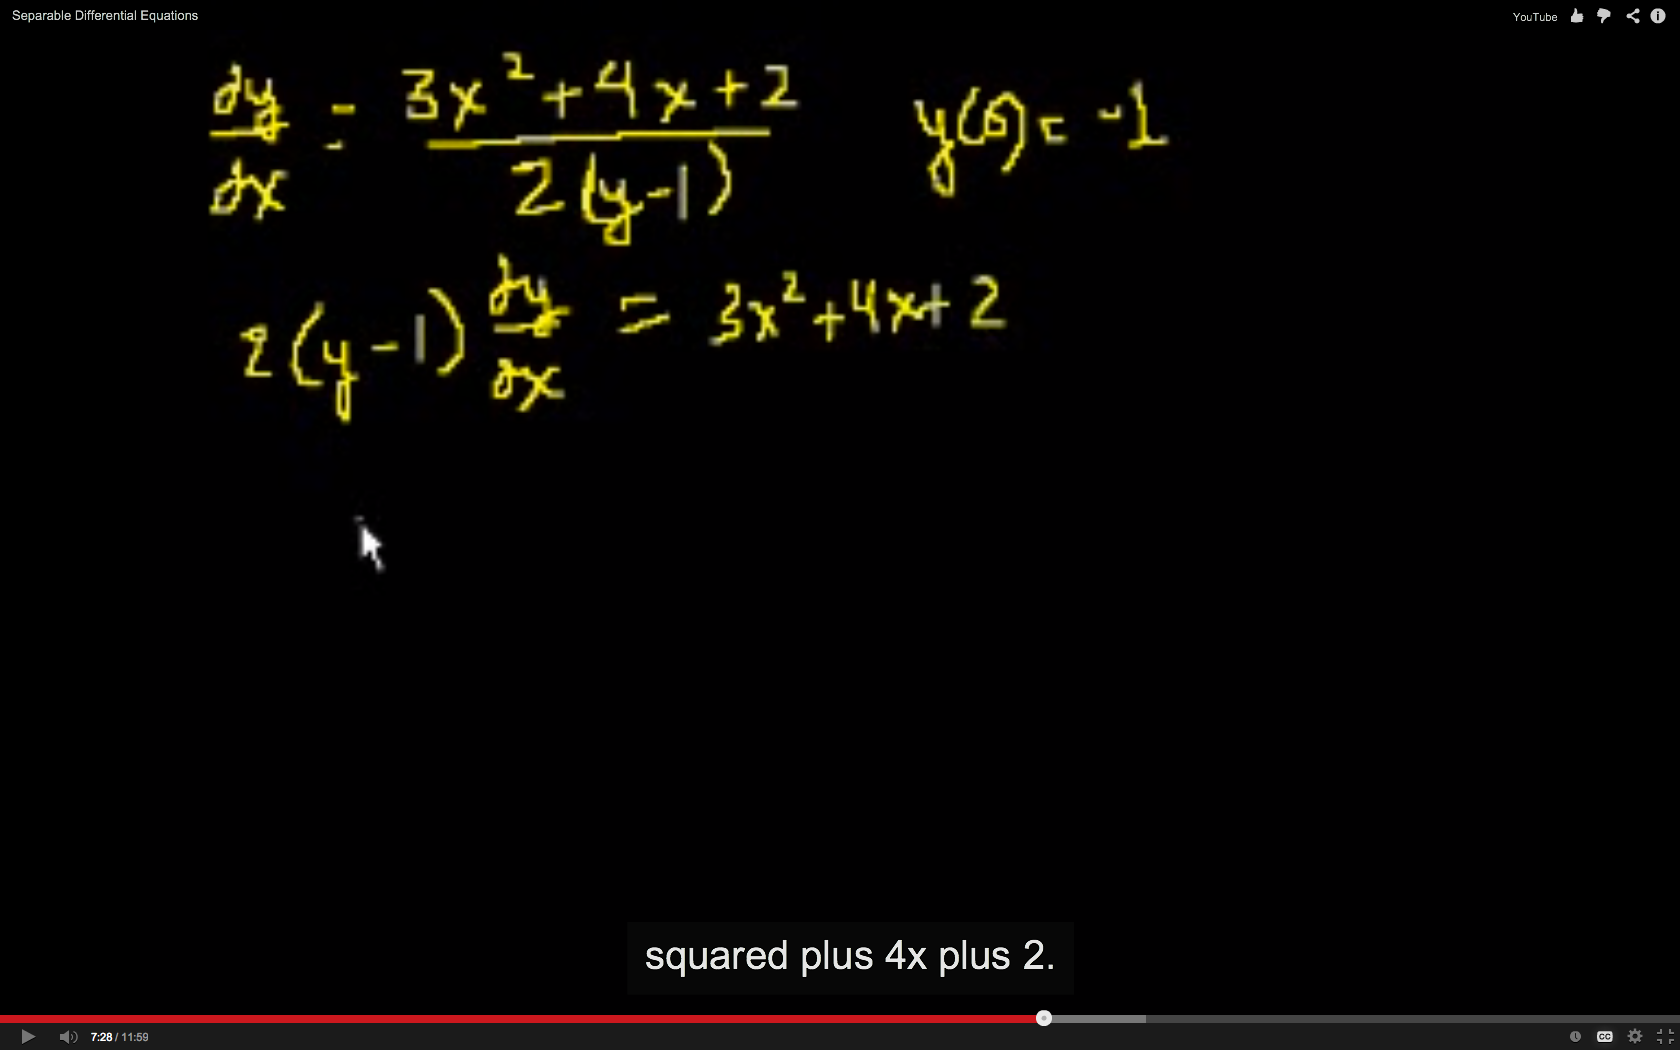 Separable Differential Equations
YouTube
dy/dx = (3x² + 4x + 2) / (2(y - 1))    y(0) = -1
2(y - 1) dy/dx = 3x² + 4x + 2
squared plus 4x plus 2.
7:28 / 11:59
CC